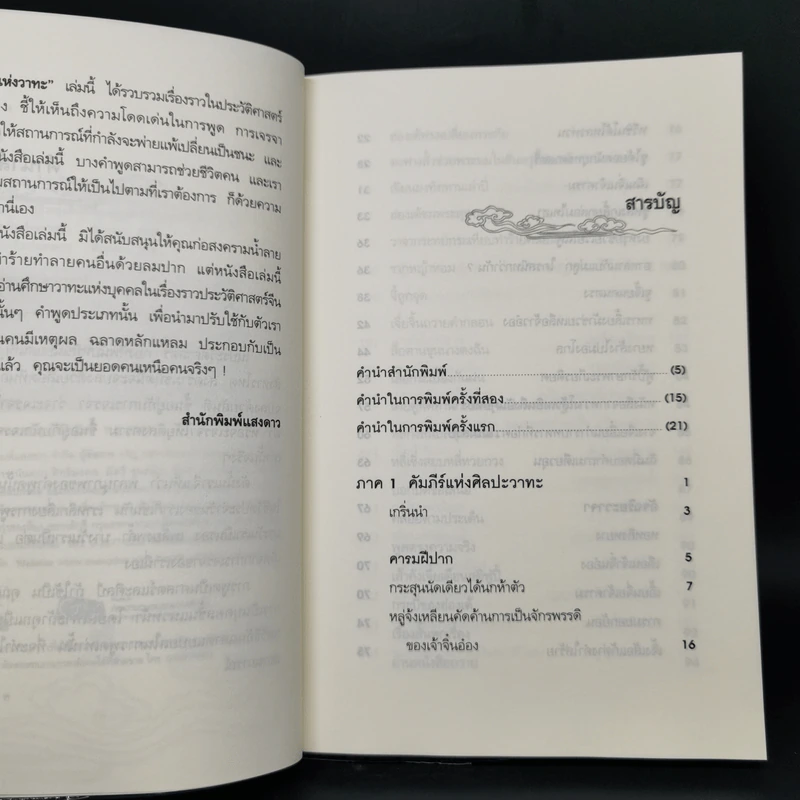 ห่งวาทะ” เล่มนี้ ได้รวบรวมเรื่องราวในประวัติศาสตร์
ง ชี้ให้เห็นถึงความโดดเด่นในการพูด การเจรจา
ให้สถานการณ์ที่กำลังจะพ่ายแพ้เปลี่ยนเป็นชนะ และ
นังสือเล่มนี้ บางคำพูดสามารถช่วยชีวิตคน และเรา
สถานการณ์ให้เป็นไปตามที่เราต้องการ ก็ด้วยความ
านี่เอง
นังสือเล่มนี้ มิได้สนับสนุนให้คุณก่อสงครามน้ำลาย
ำร้ายทำลายคนอื่นด้วยลมปาก แต่หนังสือเล่มนี้
อ่านศึกษาวาทะแห่งบุคคลในเรื่องราวประวัติศาสตร์จีน
นั้นๆ คำพูดประเภทนั้น เพื่อนำมาปรับใช้กับตัวเรา
นคนมีเหตุผล ฉลาดหลักแหลม ประกอบกับเป็น
แล้ว คุณจะเป็นยอดคนเหนือคนจริงๆ !
สำนักพิมพ์แสงดาว
สารบัญ
คำนำสำนักพิมพ์ (5)
คำนำในการพิมพ์ครั้งที่สอง (15)
คำนำในการพิมพ์ครั้งแรก (21)
ภาค 1 คัมภีร์แห่งศิลปะวาทะ 1
เกริ่นนำ 3
คารมฝีปาก 5
กระสุนนัดเดียวได้นกห้าตัว 7
หลู่จ้งเหลียนคัดค้านการเป็นจักรพรรดิ
ของเจ้าจิ๋นอ๋อง 16